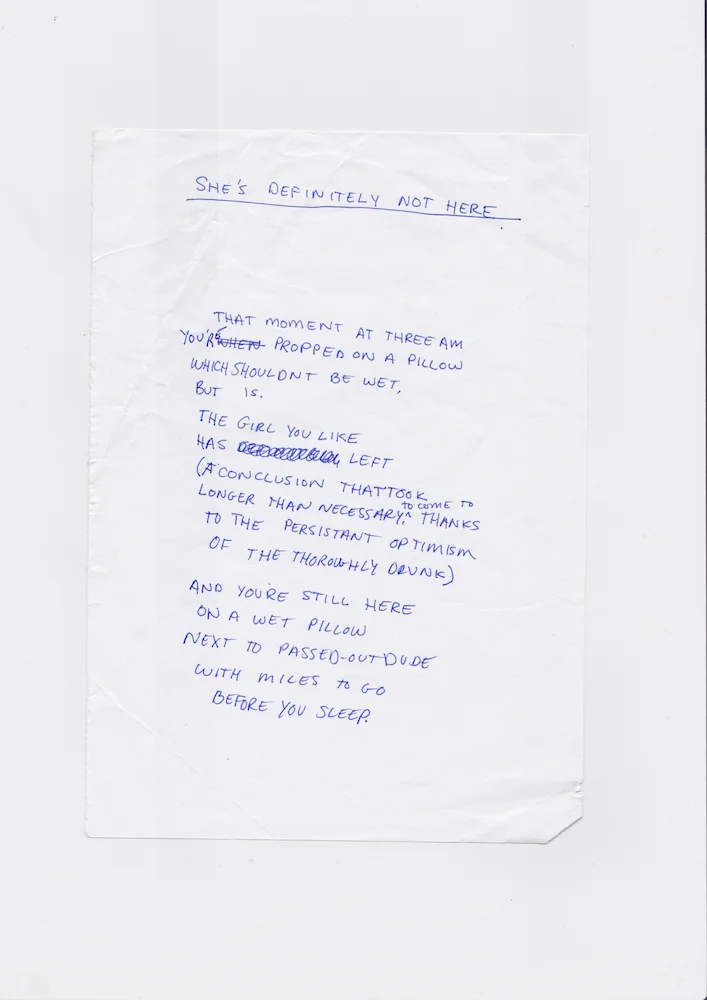 SHE'S DEFINITELY NOT HERE
THAT MOMENT AT THREE AM
YOU'RE WHEN PROPPED ON A PILLOW
WHICH SHOULDNT BE WET,
BUT IS.
THE GIRL YOU LIKE
HAS LEFT
(A CONCLUSION THAT TOOK
LONGER THAN NECESSARY, TO COME TO THANKS
TO THE PERSISTANT OPTIMISM
OF THE THOROUGHLY DRUNK)
AND YOU'RE STILL HERE
ON A WET PILLOW
NEXT TO PASSED-OUT DUDE
WITH MILES TO GO
BEFORE YOU SLEEP.